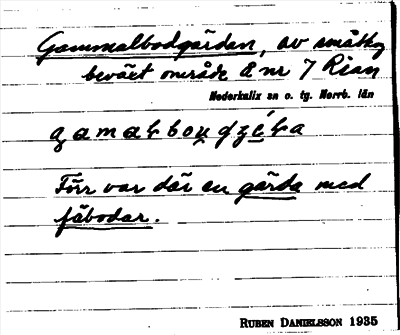 Gammalbodgärdan, av småskog
beväxt område å nr 7 Rian
Nederkalix sn o. tg. Norrb. län
Förr var där en gärda med
fäbodar.
RUBEN DANIELSSON 1935